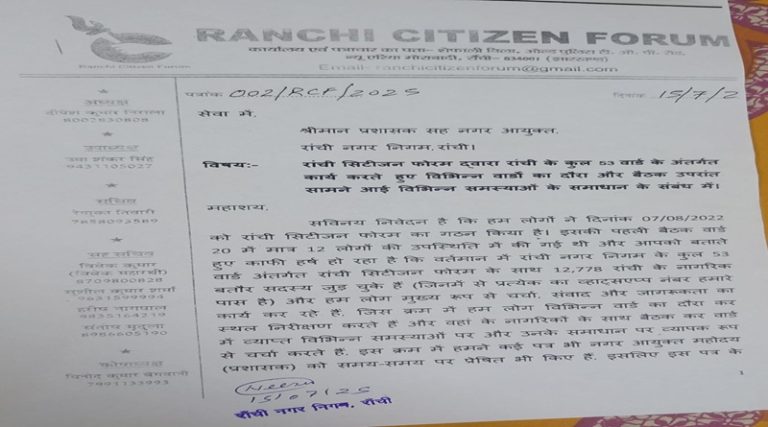 RANCHI CITIZEN FORUM
Ranchi Citizen Forum
कार्यालय एवं पत्राचार का पता:- शेफाली विला, ओल्ड पुलिस टी. ओ. पी. रोड,
न्यू एरिया मोराबादी, राँची- 834001 (झारखण्ड)
Email- ranchicitizenforum@gmail.com
पत्रांक 002/RCF/2025
दिनांक 15/7/2
अध्यक्ष
दीपेश कुमार निराला
उपाध्यक्ष
उमा शंकर सिंह
9431105027
सचिव
रेणुका तिवारी
सह सचिव
विवेक कुमार
8709800828
सुशील कुमार शर्मा
9631599994
हरीश नागपाल
9835164219
6986605190
कोषाध्यक्ष
7991133993
सेवा में,
श्रीमान प्रशासक सह नगर आयुक्त,
रांची नगर निगम, रांची।
विषय:- रांची सिटीजन फोरम द्वारा रांची के कुल 53 वार्ड के अंतर्गत
कार्य करते हुए विभिन्न वार्डों का दौरा और बैठक उपरांत
सामने आई विभिन्न समस्याओं के समाधान के संबंध में।
महाशय,
सविनय निवेदन है कि हम लोगों ने दिनांक 07/08/2022
को रांची सिटीजन फोरम का गठन किया है। इसकी पहली बैठक वार्ड
20 में मात्र 12 लोगों की उपस्थिति में की गई थी और आपको बताते
हुए काफी हर्ष हो रहा है कि वर्तमान में रांची नगर निगम के कुल 53
वार्ड अंतर्गत रांची सिटीजन फोरम के साथ 12,778 रांची के नागरिक
बतौर सदस्य जुड़ चुके हैं (जिनमें से प्रत्येक का व्हाट्सएप्प नंबर हमारे
पास है) और हम लोग मुख्य रूप से चर्चा, संवाद और जागरूकता का
कार्य कर रहे हैं. जिस क्रम में हम लोग विभिन्न वार्ड का दौरा कर
स्थल निरीक्षण करते हैं और वहां के नागरिकों के साथ बैठक कर वार्ड
में व्याप्त विभिन्न समस्याओं पर और उनके समाधान पर व्यापक रूप
से चर्चा करते हैं. इस क्रम में हमने कई पत्र भी नगर आयुक्त महोदय
(प्रशासक) को समय-समय पर प्रेषित भी किए हैं. इसलिए इस पत्र के
1
15/07/25
राँची नगर निगम, राँची